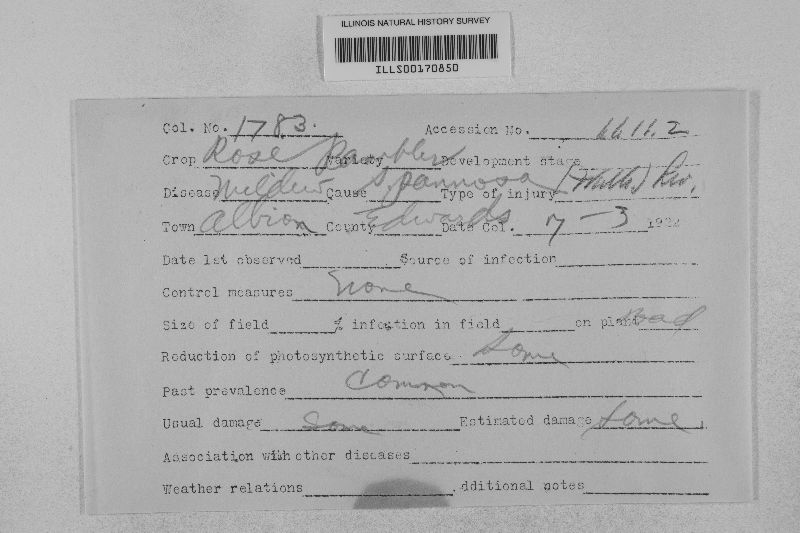 ILLINOIS NATURAL HISTORY SURVEY
ILLS00170850
Col. No. 1783. Accession No. 6611.2
Crop Rose Rambler Variety Development stage
Disease Mildew Cause S. pannosa Type of injury (Wallr.) Lev.
Town Albion County Edwards Date Col. 7-3 1922
Date 1st observed Source of infection
Control measures None
Size of field % infection in field on plant Bad
Reduction of photosynthetic surface Some
Past prevalence Common
Usual damage Some Estimated damage Some
Association with other diseases
Weather relations dditional notes